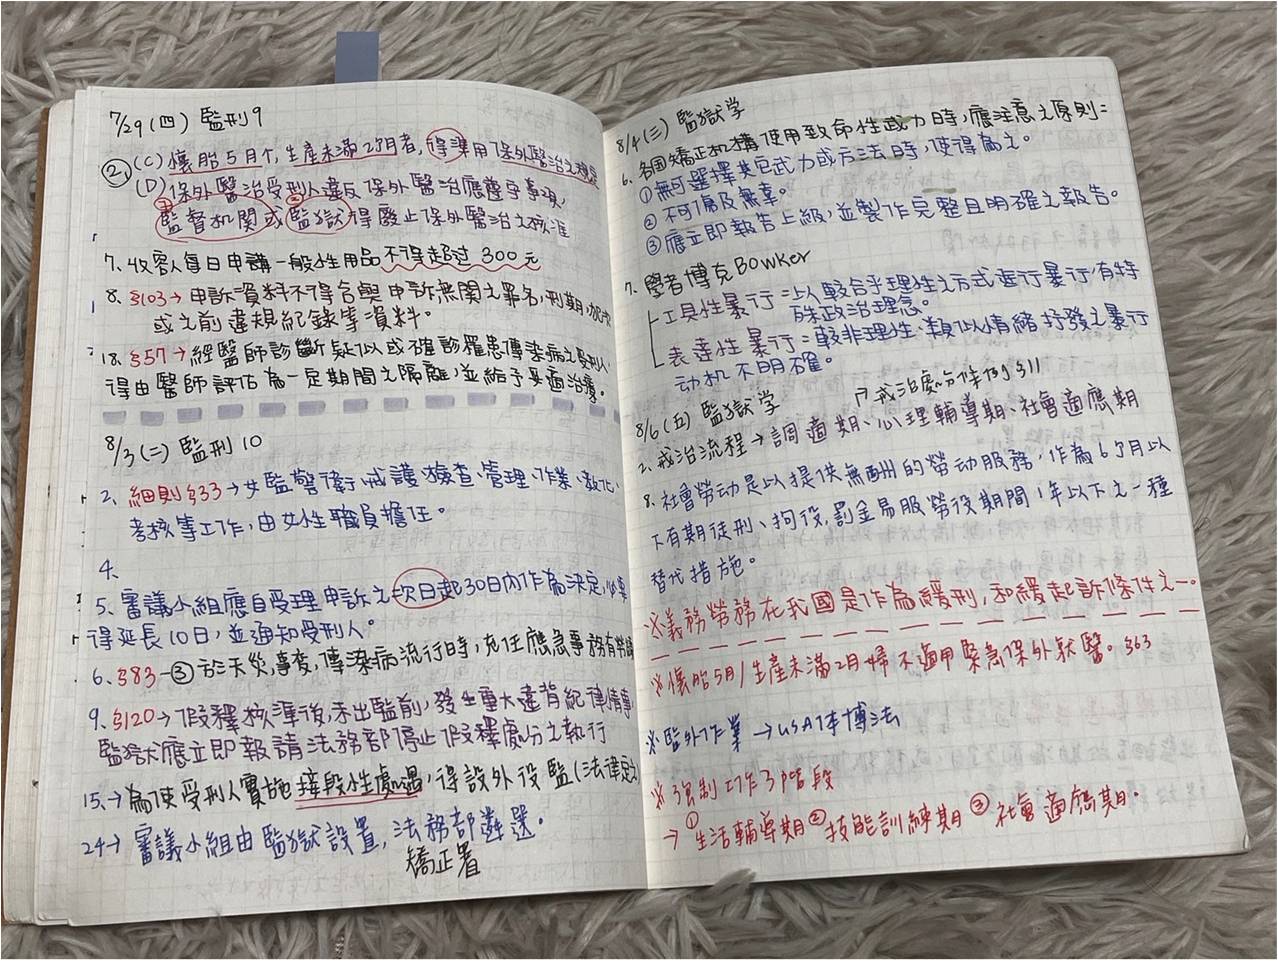 7/29(四) 監刑9
②(C)懷胎5月↑,生產未滿2月者,得準用保外醫治之規定
(D)保外醫治受刑人違反保外醫治應遵守事項,
監督机関或監獄得廢止保外醫治之核准
7、收容人每日申購一般性用品不得超过300元
8、§103→申訴資料不得含與申訴無關之罪名,刑期,犯次
或之前違規紀錄等資料。
18、§57→經醫師診斷疑似或確診罹患傳染病之受刑人
得由醫師評估為一定期間之隔離,並給予妥適治療。
8/3(二) 監刑10
2、細則§33→女監警衛、戒護、檢查、管理、作業、教化、
考核等工作,由女性職員擔任。
4、
5、審議小組應自受理申訴之次日起30日內作為決定,必要
得延長10日,並通知受刑人。
6、§83-③於天災,事變,傳染病流行時,充任應急事務有勞績
9、§120→假釋核準後,未出監前,發生重大違背紀律情事,
監獄應立即報請法務部停止假釋處分之執行
15、→為使受刑人實施接段性處遇,得設外役監(法律定之)
24→審議小組由監獄設置,法務部遴選。
矯正署
8/4(三) 監獄学
6、各国矯正机構使用致命性武力時,應注意之原則:
①無可選擇其它武力或方法時,使得為之。
②不可傷及無辜。
③應立即報告上級,並製作完整且明確之報告。
7、學者博克Bowker
工具性暴行:以較合乎理性之方式進行暴行,有特
殊政治理念。
表達性暴行:較非理性、類似情緒抒發之暴行
动机不明確。
8/6(五) 監獄学
戒治處分條例§11
2、戒治流程→調適期、心理輔導期、社會適應期
8、社會勞动是以提供無酬的勞动服務,作為6月以
下有期徒刑、拘役,罰金易服勞役期間1年以下之一種
替代措施。
※義務勞務在我國是作為緩刑,和緩起訴條件之一。
※懷胎5月/生產未滿2月婦不適用緊急保外就醫。§63
※監外作業→USA休博法
※強制工作3階段
→①生活輔導期②技能訓練期③社會適應期。